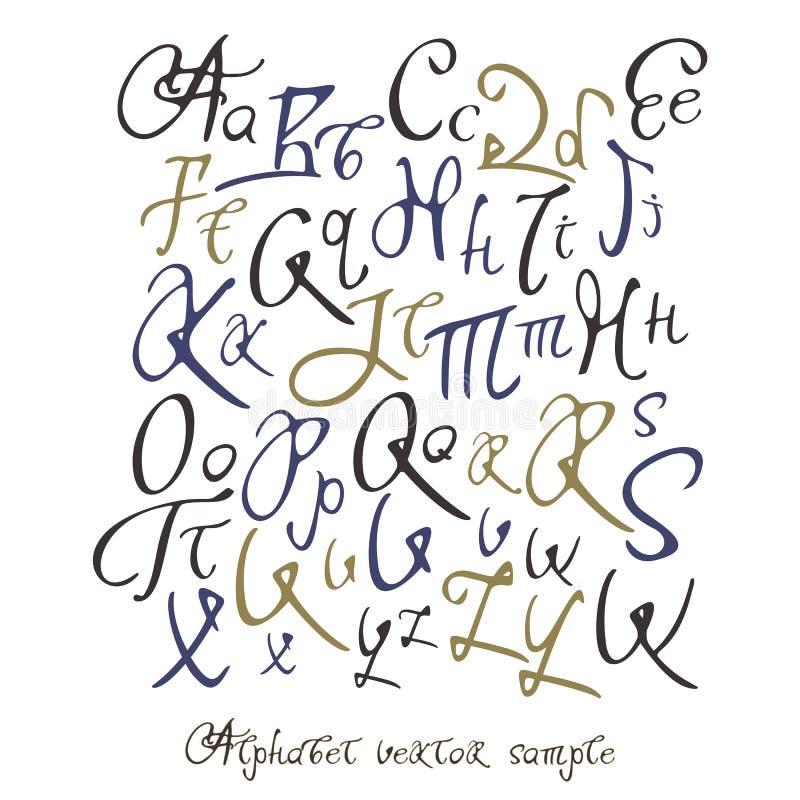 Aa Bb Cc Dd Ee
Ff Gg Hh Ii Jj
Kk Ll Mm Nn
Oo Pp Qq Rr Ss
Tt Uu Vv Ww
Xx Yy Zz
Alphabet vektor sample